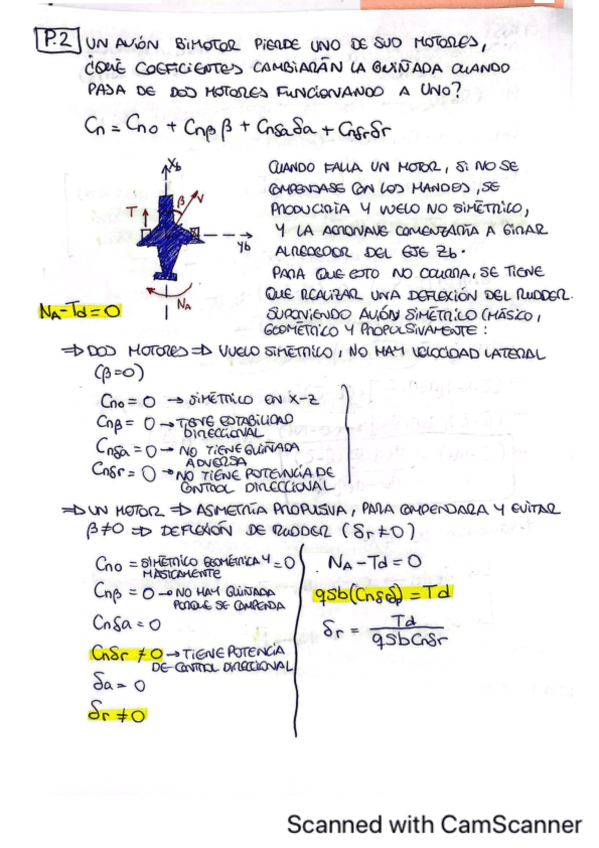 P.2 UN AVIÓN BIMOTOR PIERDE UNO DE SUS MOTORES,
¿QUÉ COEFICIENTES CAMBIARÁN LA GUIÑADA CUANDO
PASA DE DOS MOTORES FUNCIONANDO A UNO?
Cn = Cno + Cnβ β + Cnδa δa + Cnδr δr
CUANDO FALLA UN MOTOR, SI NO SE
COMPENSASE CON LOS MANDOS, SE
PRODUCIRÍA Y VUELO NO SIMÉTRICO,
Y LA AERONAVE COMENZARÍA A GIRAR
ALREDEDOR DEL EJE Zb.
PARA QUE ESTO NO OCURRA, SE TIENE
QUE REALIZAR UNA DEFLEXIÓN DEL RUDDER.
SUPONIENDO AVIÓN SIMÉTRICO (MÁSICO,
GEOMÉTRICO Y PROPULSIVAMENTE:
Xb
β V
T
yb
NA
NA - Td = 0
⇒ DOS MOTORES ⇒ VUELO SIMÉTRICO, NO HAY VELOCIDAD LATERAL
(β=0)
Cno = 0 → SIMÉTRICO EN X-Z
Cnβ = 0 → TIENE ESTABILIDAD
DIRECCIONAL
Cnδa = 0 → NO TIENE GUIÑADA
ADVERSA
Cnδr = 0 → NO TIENE POTENCIA DE
CONTROL DIRECCIONAL
⇒ UN MOTOR ⇒ ASIMETRÍA PROPULSIVA, PARA COMPENSARLA Y EVITAR
β≠0 ⇒ DEFLEXIÓN DE RUDDER (δr ≠ 0)
Cno = SIMÉTRICO GEOMÉTRICA Y = 0
MÁSICAMENTE
Cnβ = 0 → NO HAY GUIÑADA
PORQUE SE COMPENSA
Cnδa = 0
Cnδr ≠ 0 → TIENE POTENCIA
DE CONTROL DIRECCIONAL
δa = 0
δr ≠ 0
NA - Td = 0
qSb(Cnδr δr) = Td
δr = Td / qSbCnδr
Scanned with CamScanner